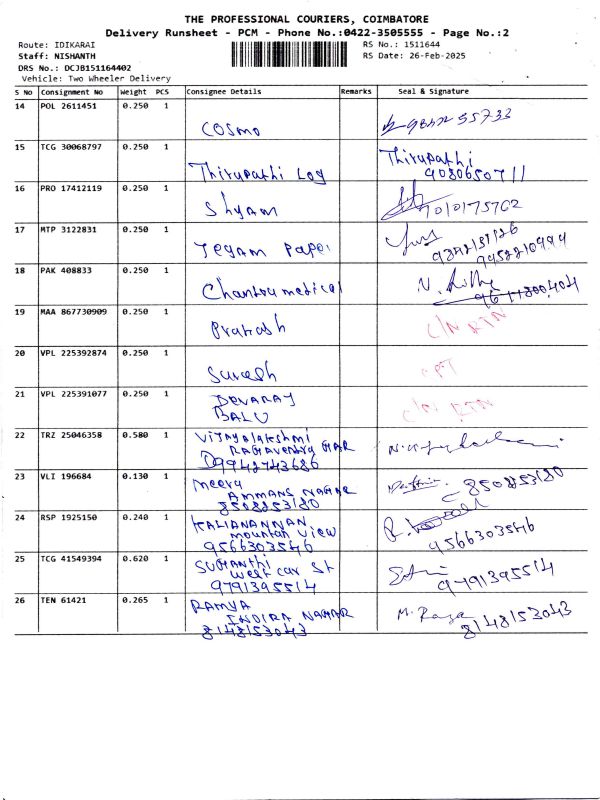 THE PROFESSIONAL COURIERS, COIMBATORE
Delivery Runsheet - PCM - Phone No.:0422-3505555 - Page No.:2
Route: IDIKARAI RS No.: 1511644
Staff: NISHANTH RS Date: 26-Feb-2025
DRS No.: DCJB151164402
Vehicle: Two Wheeler Delivery
S No Consignment No Weight PCS Consignee Details Remarks Seal & Signature
14 POL 2611451 0.250 1
COSMO
15 TCG 30068797 0.250 1 Thirupathi
Thirupathi Log 9080650711
16 PRO 17412119 0.250 1
Shyam 7010175762
17 MTP 3122831 0.250 1
Jegam Paper 9842131126
9952210994
18 PAK 408833 0.250 1
Chandru medical
19 MAA 867730909 0.250 1
Prakash C/N RTN
20 VPL 225392874 0.250 1
Suresh
21 VPL 225391077 0.250 1 DEVARAJ
BALU C/N RTN
22 TRZ 25046358 0.580 1 Vijayalakshmi
RAGAVENDRA NAR
9942743686
23 VLI 196684 0.130 1 Meera
AMMANS NAGAR 8508253180
8508253180
24 RSP 1925150 0.240 1 KALIANANNAN
mountan view
9566303546 9566303546
25 TCG 41549394 0.620 1 SUGANTHI
West car St
9791395514 9791395514
26 TEN 61421 0.265 1 RAMYA
INDIRA NAGAR
8148153043 8148153043